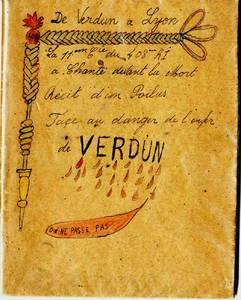 De Verdun a Lyon
La 11eme Cie du 408me RI
a Chanté devant la Mort
Récit d'un Poilus
Face au danger de l'enfer
de VERDUN
ON NE PASSE PAS